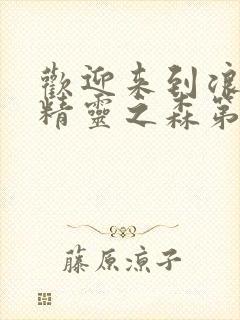 歡迎来到浪
精靈之森第
藤原涼子